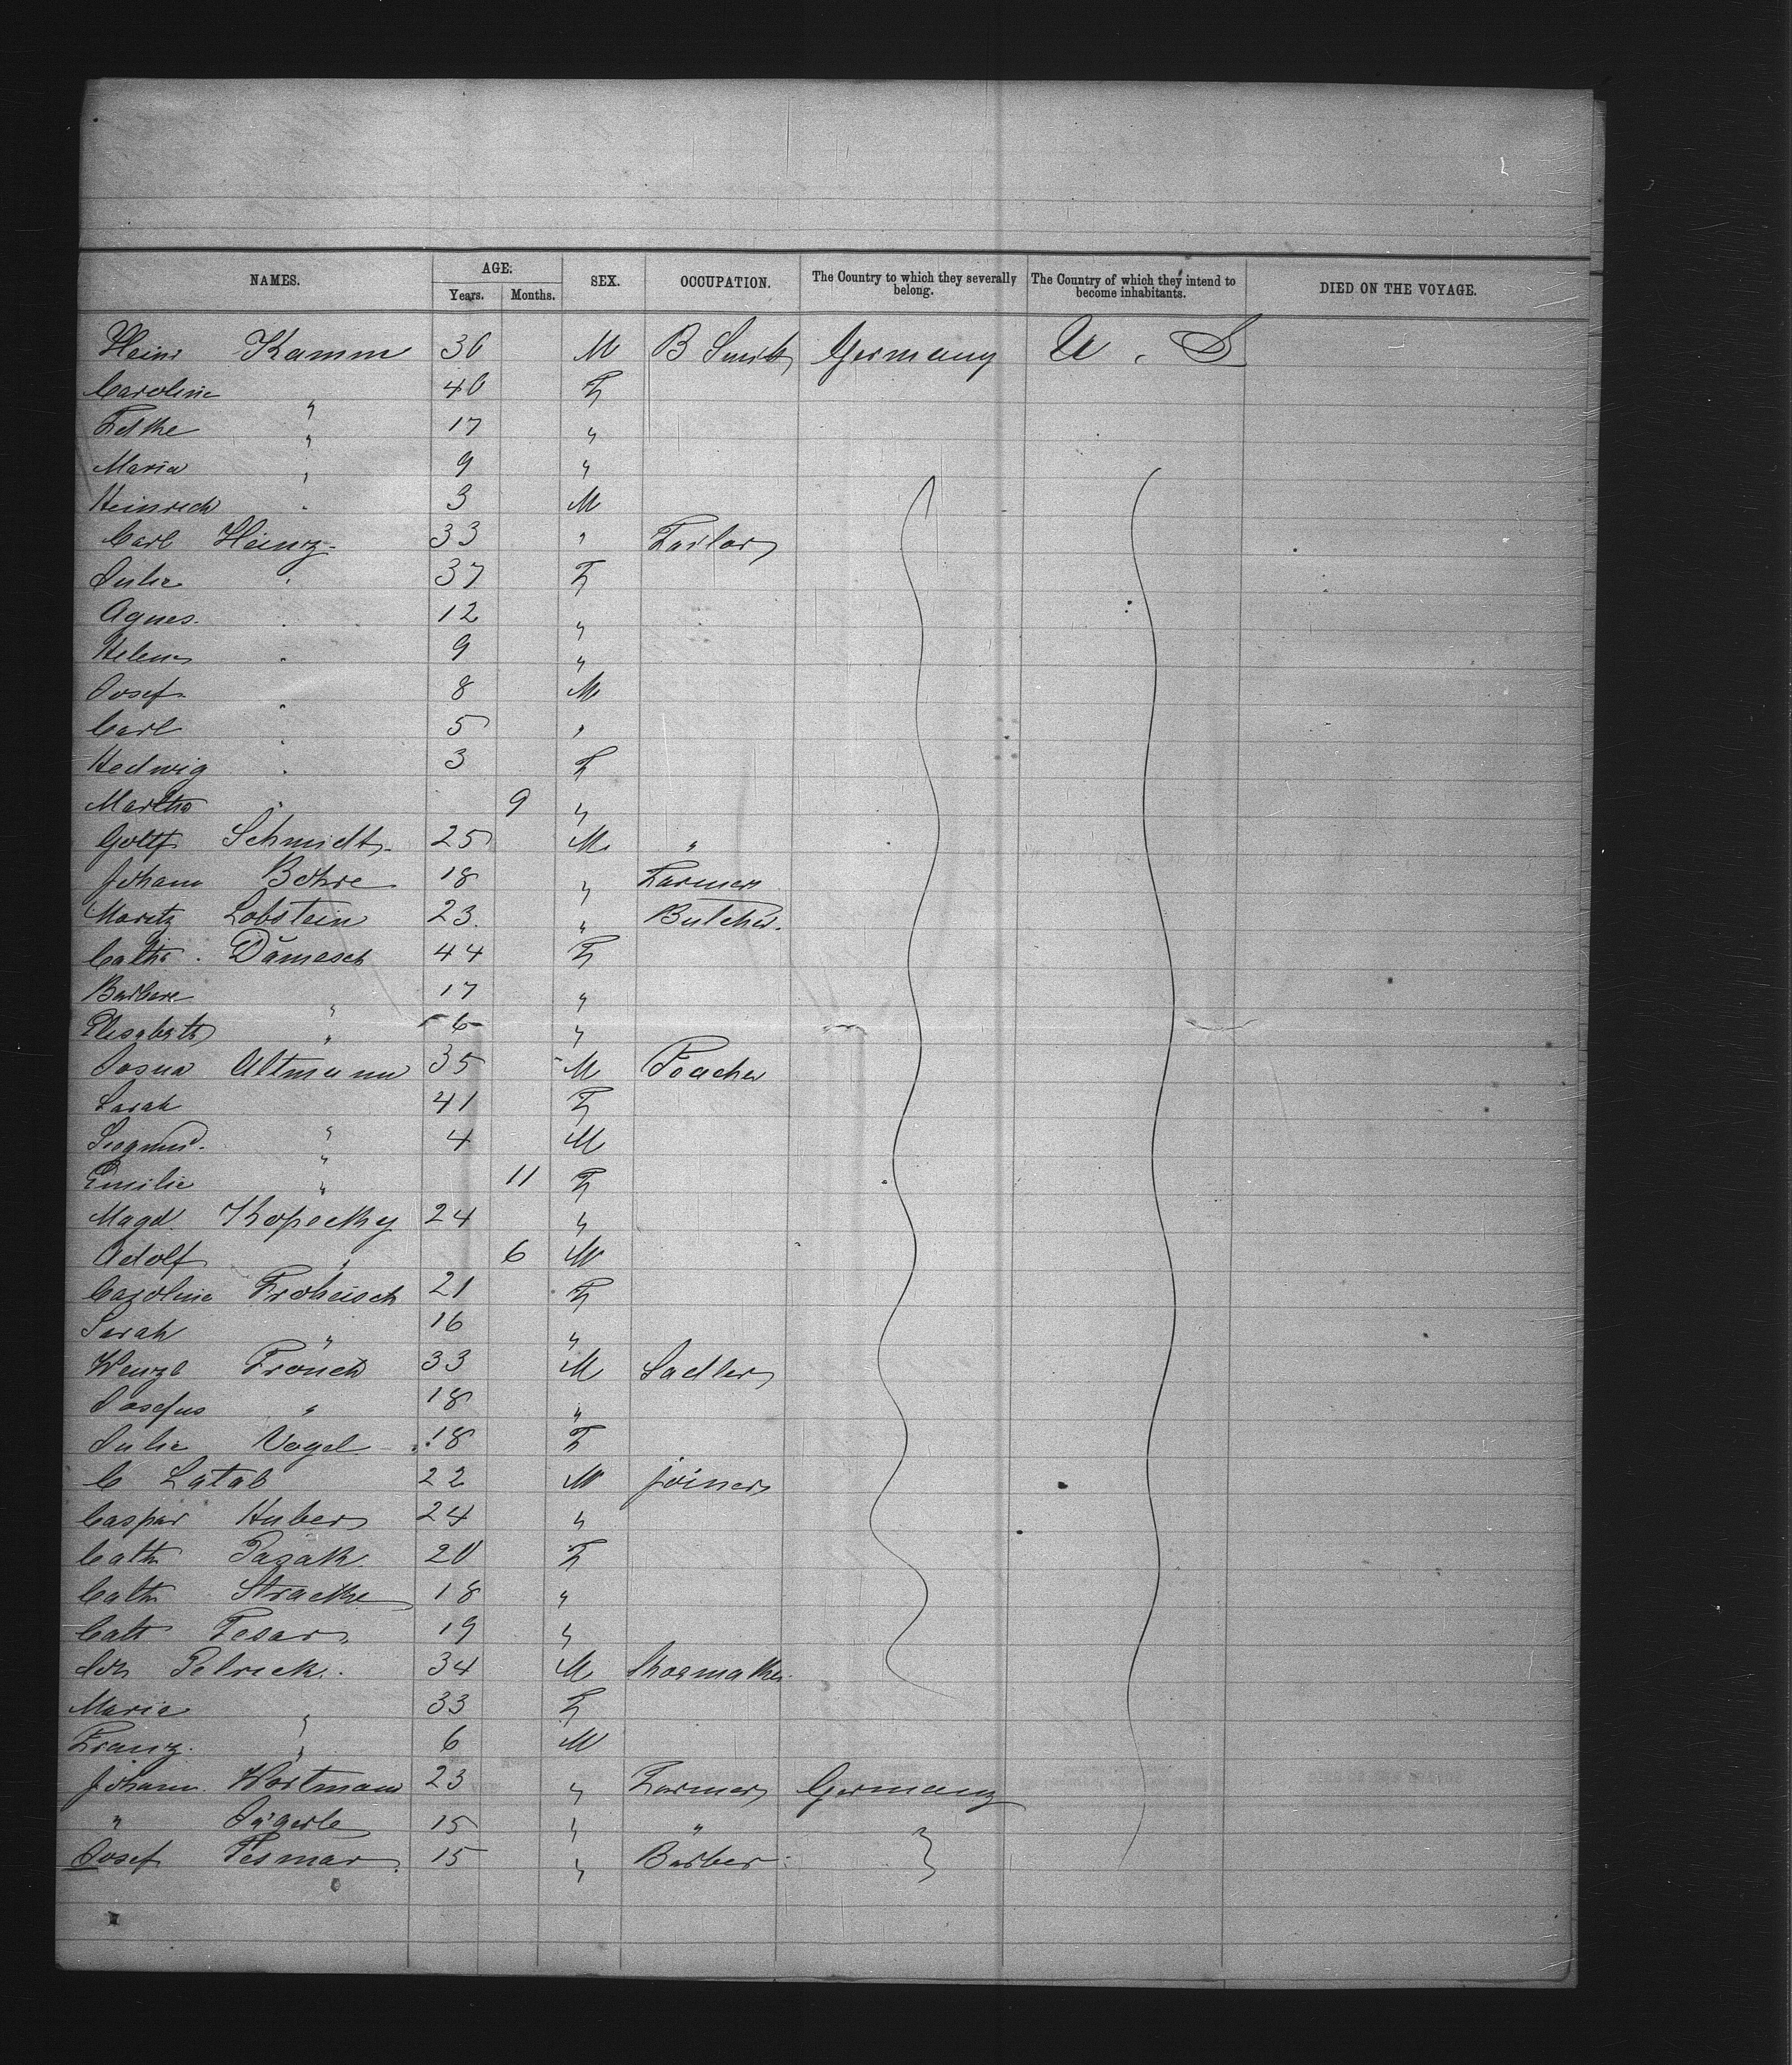 NAMES. AGE. SEX. OCCUPATION. The Country to which they severally belong. The Country of which they intend to become inhabitants. DIED ON THE VOYAGE.
Years. Months.
Heinr Kamm 30 M B Smith Germany U. S
Caroline " 40 F
" 17 "
Maria " 9 "
Heinrich " 3 M
Carl Heinz 33 " Tailor
Julie " 37 F
Agnes " 12 "
Helene " 9 "
Josef " 8 M
Carl " 5 "
Hedwig " 3 F
Martha " 9 "
Gottf Schmidt 25 M "
Johann Bohre 18 " Farmer
Moritz Lobstein 23 " Butcher
Cath. Damasch 44 F
Barbara " 17 "
Elisabeth " 6 "
Josua Altmann 35 M Teacher
Sarah " 41 F
Siegmd. " 4 M
Emilie " 11 F
Magd. Kopecky 24 "
Adolf " 6 M
Caroline 21 F
Sarah " 16 "
Wenzl 33 M Sadler
Josefus " 18 "
Julie Vogel 18 F
C Latal 22 M joiner
Caspar Huber 24 "
Cath Pazak 20 F
Cath Stracke 18 "
Cath Tesar 19 "
Joh Petrick 34 M Shoemaker
Maria " 33 F
Franz " 6 M
Johann Wortmann 23 " Farmer Germany
" Jägerle 15 " "
Josef Tesmar 15 " Barber